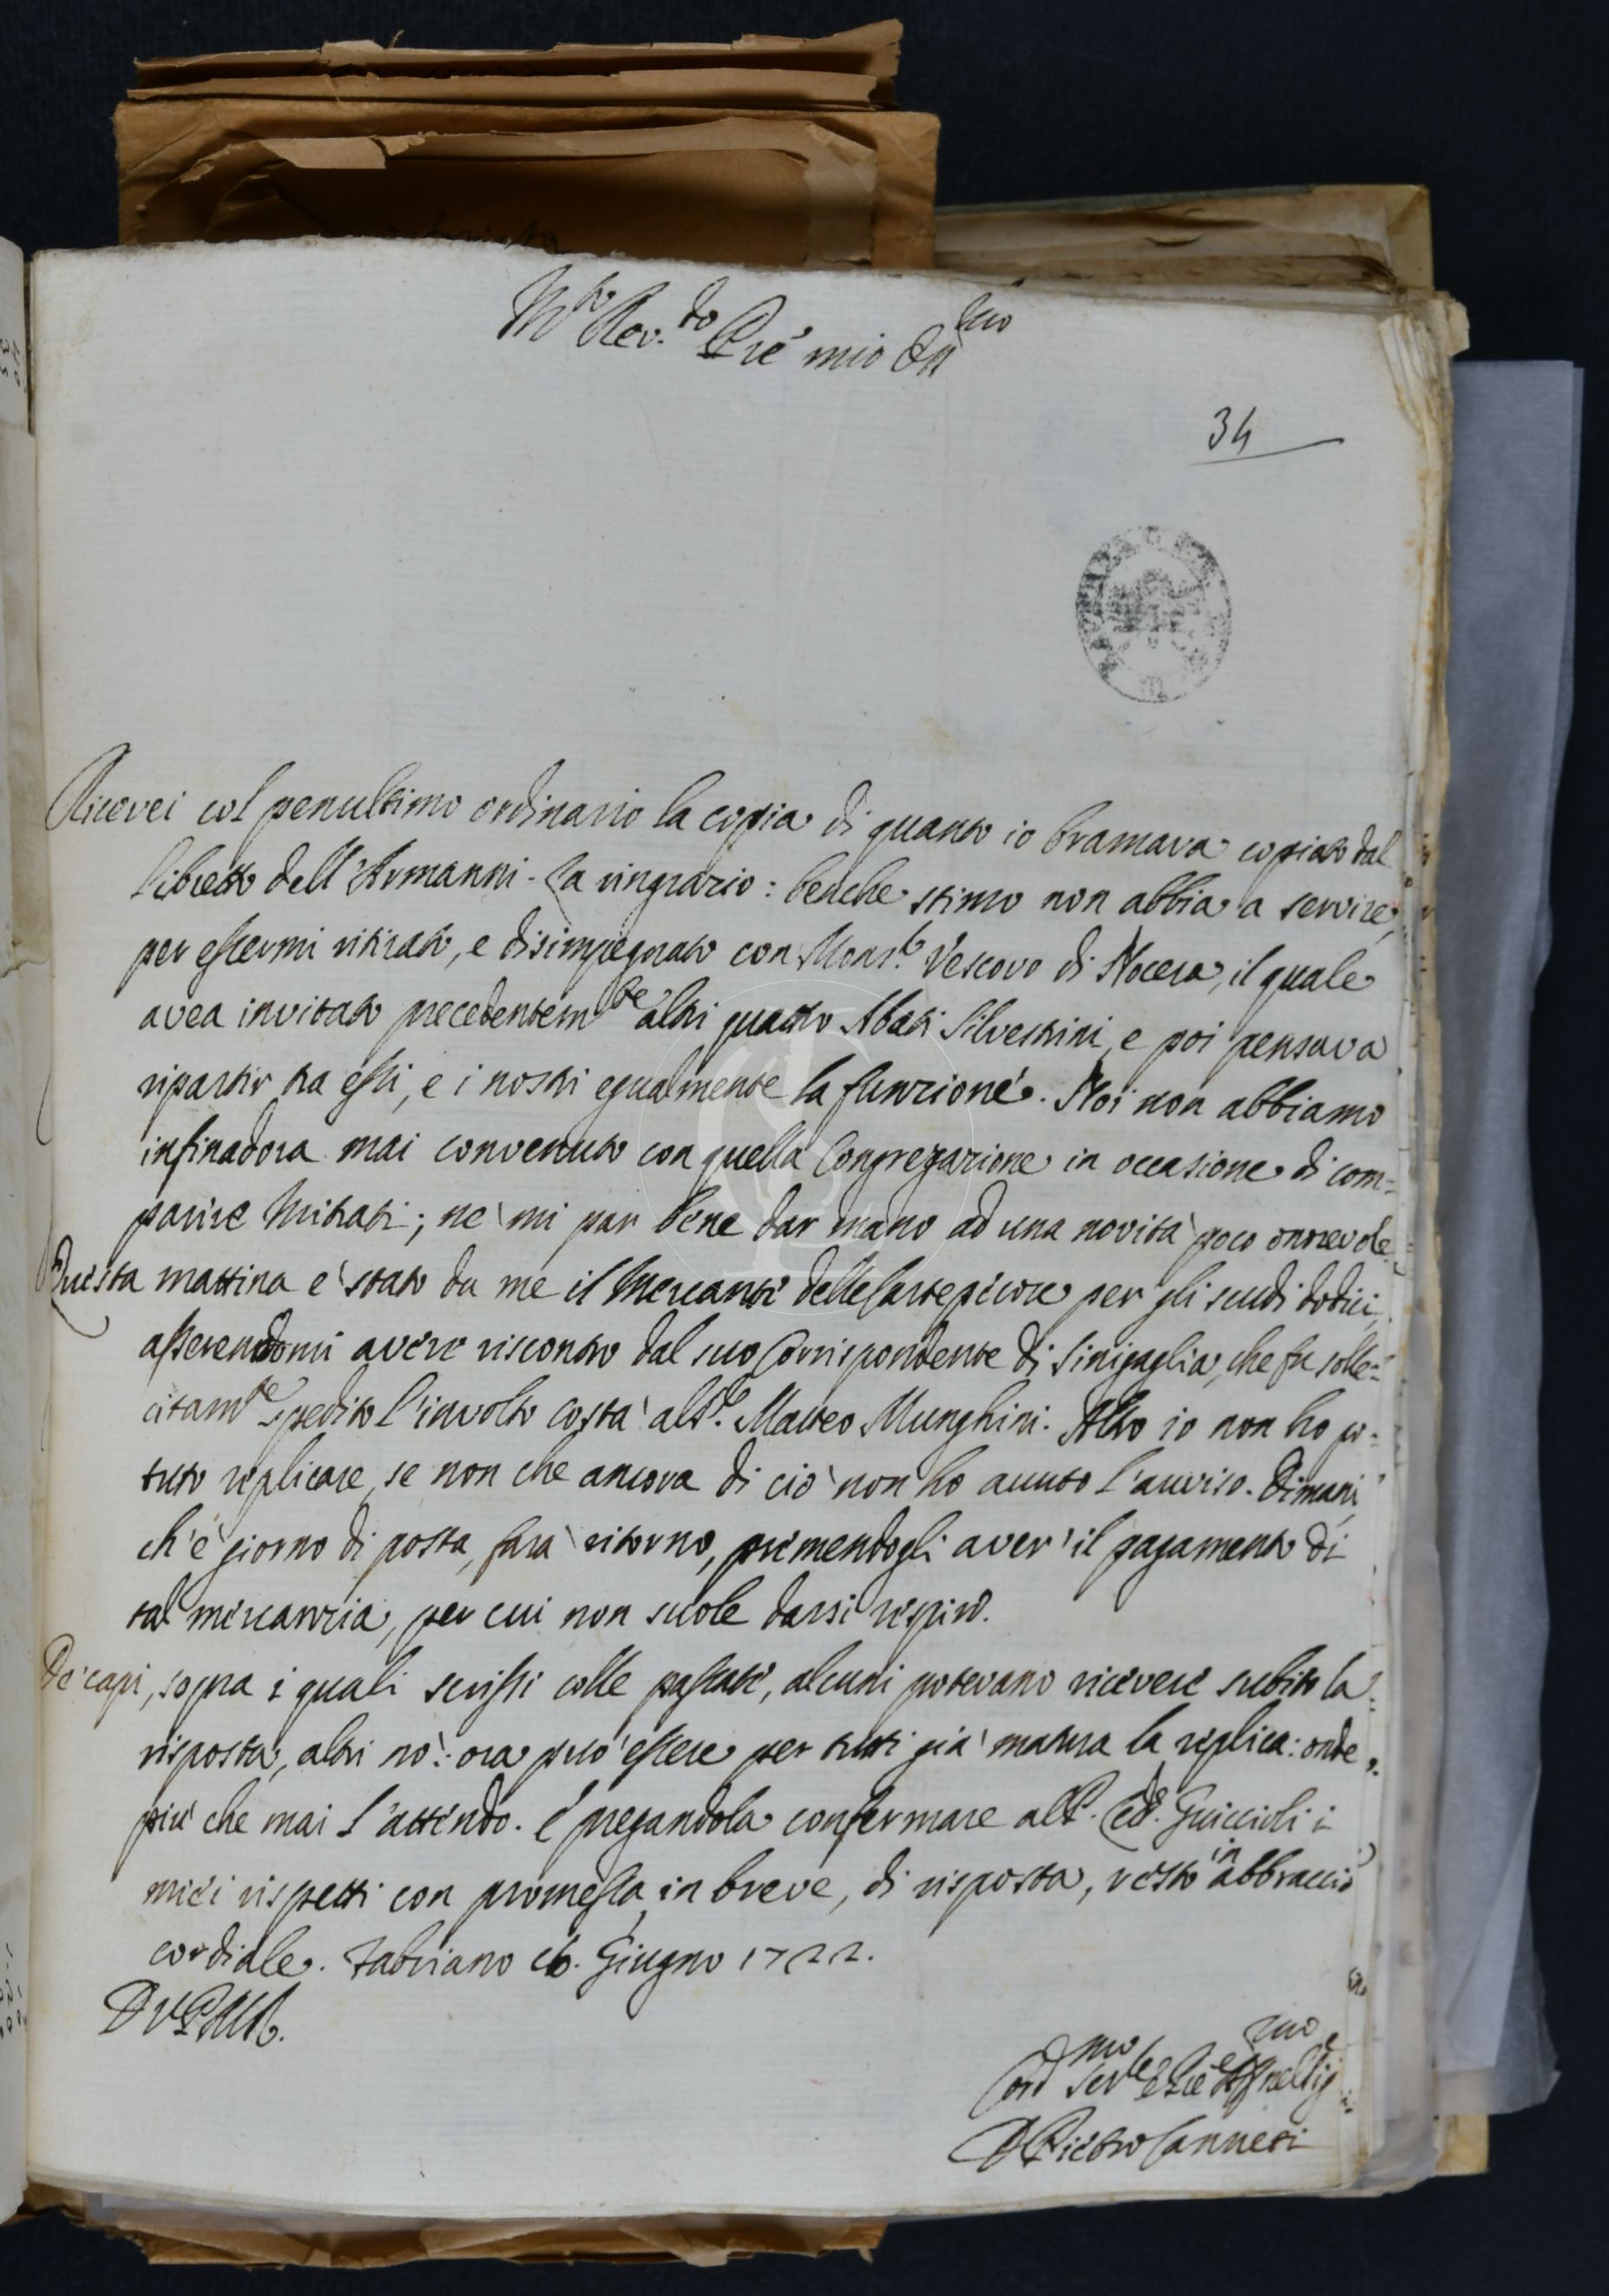 M.to Rev.do Pre mio Oss.mo
34
Ricevei col penultimo ordinario la copia di quanto io bramava copiato dal
libretto dell'Armanni. La ringrazio: benche stimo non abbia a servire,
per essermi ritirato, e disimpegnato con Mons.r Vescovo di Nocera, il quale
avea invitato precedentem.te altri quattro Abati Silvestrini, e poi pensava
ripartir tra essi, e i nostri egualmente la funzione. Noi non abbiamo
infinadora mai convenuto con quella Congregazione in occasione di com=
parire Mitrati; ne mi par bene dar mano ad una novità poco onorevole
Questa mattina e stato da me il Mercante delle Cartepecore per gli scudi dodici,
asserendomi avere riscontro dal suo Corrispondente di Sinigaglia, che fu solle=
citam.te spedito l'involto costà al S.r Matteo Munghini. Altro io non ho po=
tuto replicare, se non che ancora di ciò non ho auuto l'auuiso. Dimani,
ch'è giorno di posta, farà ritorno, premendogli aver il pagamento di
tal mercanzia, per cui non suole darsi respiro.
De capi, sopra i quali scrissi colle passate, alcuni potevano ricevere subito la
risposta, altri nò: ora può essere per tutti già matura la replica: onde
più che mai l'attendo. E pregandola confermare al P. Guiccioli i
miei rispetti con promessa, in breve, di risposta, resto in abbraccio
cordiale. Fabriano Giugno 1722.
D V P M R.
D Pietro Canneti